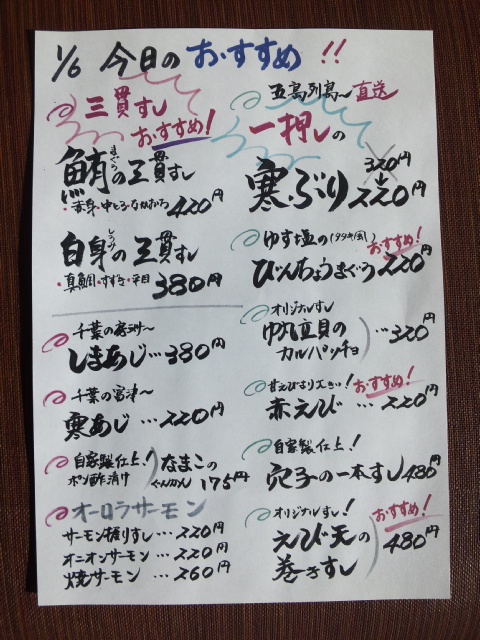 1/6 今日のおすすめ!!
三貫すし
おすすめ!
鮪の三貫すし
まぐろ
・赤身・中とろ・ながおろ 420円
白身の三貫すし
しろみ
・真鯛・すずき・平目 380円
千葉の
しまあじ…380円
千葉の富津〜
寒あじ…220円
自家製仕上!
ポン酢漬け
なまこの
ぐんかん 175円
オーロラサーモン
サーモン握りすし…220円
オニオンサーモン…220円
焼サーモン…260円
五島列島〜直送
一押しの
寒ぶり
320円
↓
220円
ゆず塩の(タタキ風)
おすすめ!
びんちょうまぐろ 220円
オリジナルすし
帆立貝の
カルパッチョ
…320円
甘えびより大きい!
おすすめ!
赤えび…220円
自家製仕上!
穴子の一本すし 480円
オリジナルすし!
おすすめ!
えび天の
巻きすし
480円